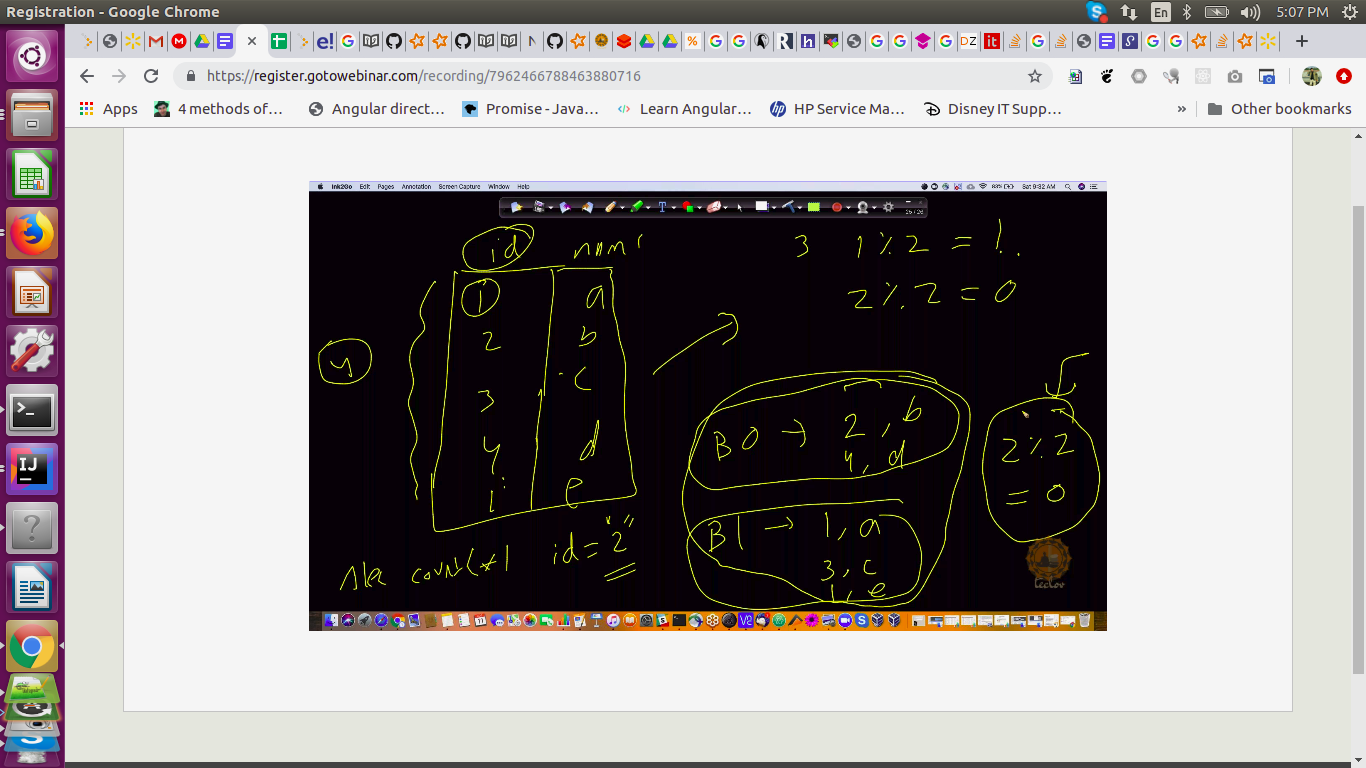 Registration - Google Chrome
En
5:07 PM
https://register.gotowebinar.com/recording/7962466788463880716
Apps
4 methods of...
Angular direct...
Promise - Java...
Learn Angular...
HP Service Ma...
Disney IT Supp...
»
Other bookmarks
Ink2Go Edit Pages Annotation Screen Capture Window Help
Sat 9:32 AM
id
3 1 % 2 = 1.
1 a
2 % 2 = 0
2 b
3 c
4 d
1 e
B0 → 2, b
4, d
2 % 2
= 0
B1 → 1, a
3, c
1, e
count(*) id = "2"